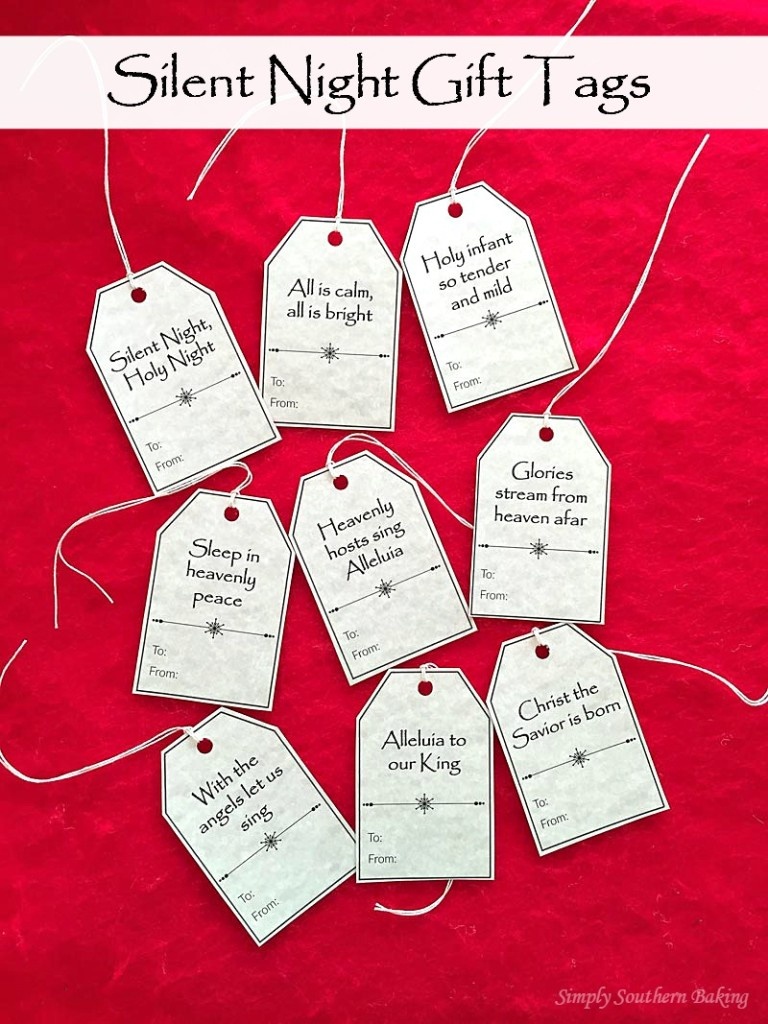 Silent Night Gift Tags
Silent Night,
Holy Night
To:
From:
All is calm,
all is bright
To:
From:
Holy infant
so tender
and mild
To:
From:
Sleep in
heavenly
peace
To:
From:
Heavenly
hosts sing
Alleluia
To:
From:
Glories
stream from
heaven afar
To:
From:
With the
angels let us
sing
To:
From:
Alleluia to
our King
To:
From:
Christ the
Savior is born
To:
From:
Simply Southern Baking